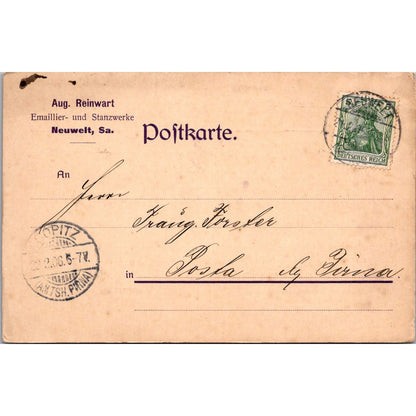 Aug. Reinwart
Emaillier- und Stanzwerke
Neuwelt, Sa.
Postkarte.
NEUWELT
DEUTSCHES REICH
An
Herrn
Traug. Förster
in Posta b/ Pirna.
COPITZ
2.06. 6-7V.
(AMTSH. PIRNA)